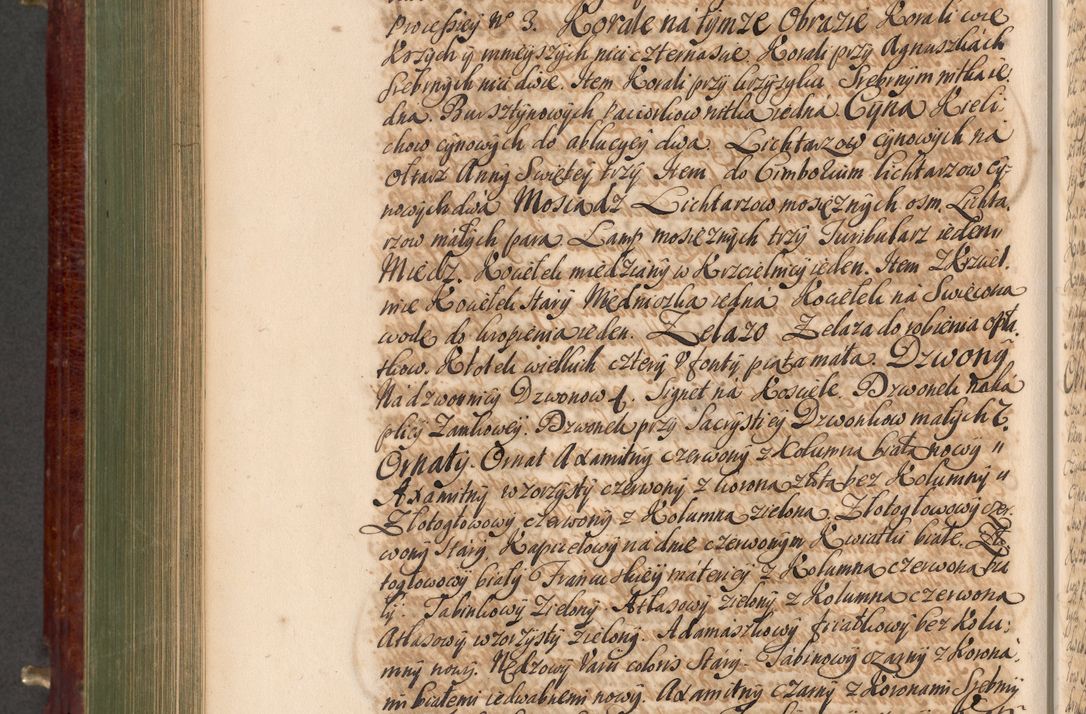 Processiey Nº 3. Korale na tymze Obrazie Korali wie
kszych y mnieyszych nici czternascie. Korali przy Agnuszkach
srebrnych nici dwie. Item Korali przy krzyzyku Srebrnym nitka ie
dna. Bursztynowych paciorkow nitka iedna. Cyna Kieli
chow cynowych do ablucyey dwa. Lichtarzow cynowych na
Ołtarz Anny Swiętey trzy Item do Cimborium lichtarzow cy-
nowych dwa Mosiadz Lichtarzow mosięznych osm. Lichta
rzow małych para Lamp mosięznych trzy Turibularz ieden
Miedz. Kociełek miedziany w Krzcielnicy ieden. Item z Krzciel
nice Kociełek Stary Miedniczka iedna Kociełek na Swiecona
wodę do kropienia ieden. Zelazo Zelaza do robienia opła
tkow. Kłotek wielkich cztery V fonty piąta mała. Dzwony
Na dzwonnicy Dzwonow 4. Signet na Kosciele Dzwonek na ka
plicy Zamkowey. Dzwonek przy Sacrystiey Dzwonkow małych 7.
Ornaty. Ornat Axamitny czerwony z Kolumna białą nowy "
Axamitny wzorzysty czerwony z korona złota bez Kolumny "
Złotogłowowy czerwony z Kolumna zielona, Złotogłowowy czer
wony Stary. Kapicielowy na dnie czerwonym Kwiatki białe. Zło
togłowowy biały Francuskiey materiey z Kolumna czerwona bia
ły. Tabinkowy Zielony. Atłasowy zielony z Kolumna czerwona
Atłasowy wzorzysty zielony. Adamaszkowy fiiałkowy bez Kolu;
mny nowy. Nędzowy Varii coloris Stary. Tabinowy czarny z Korona,
mi białemi iedwabnemi nowy. Axamitny czarny z Koronami Srebrny